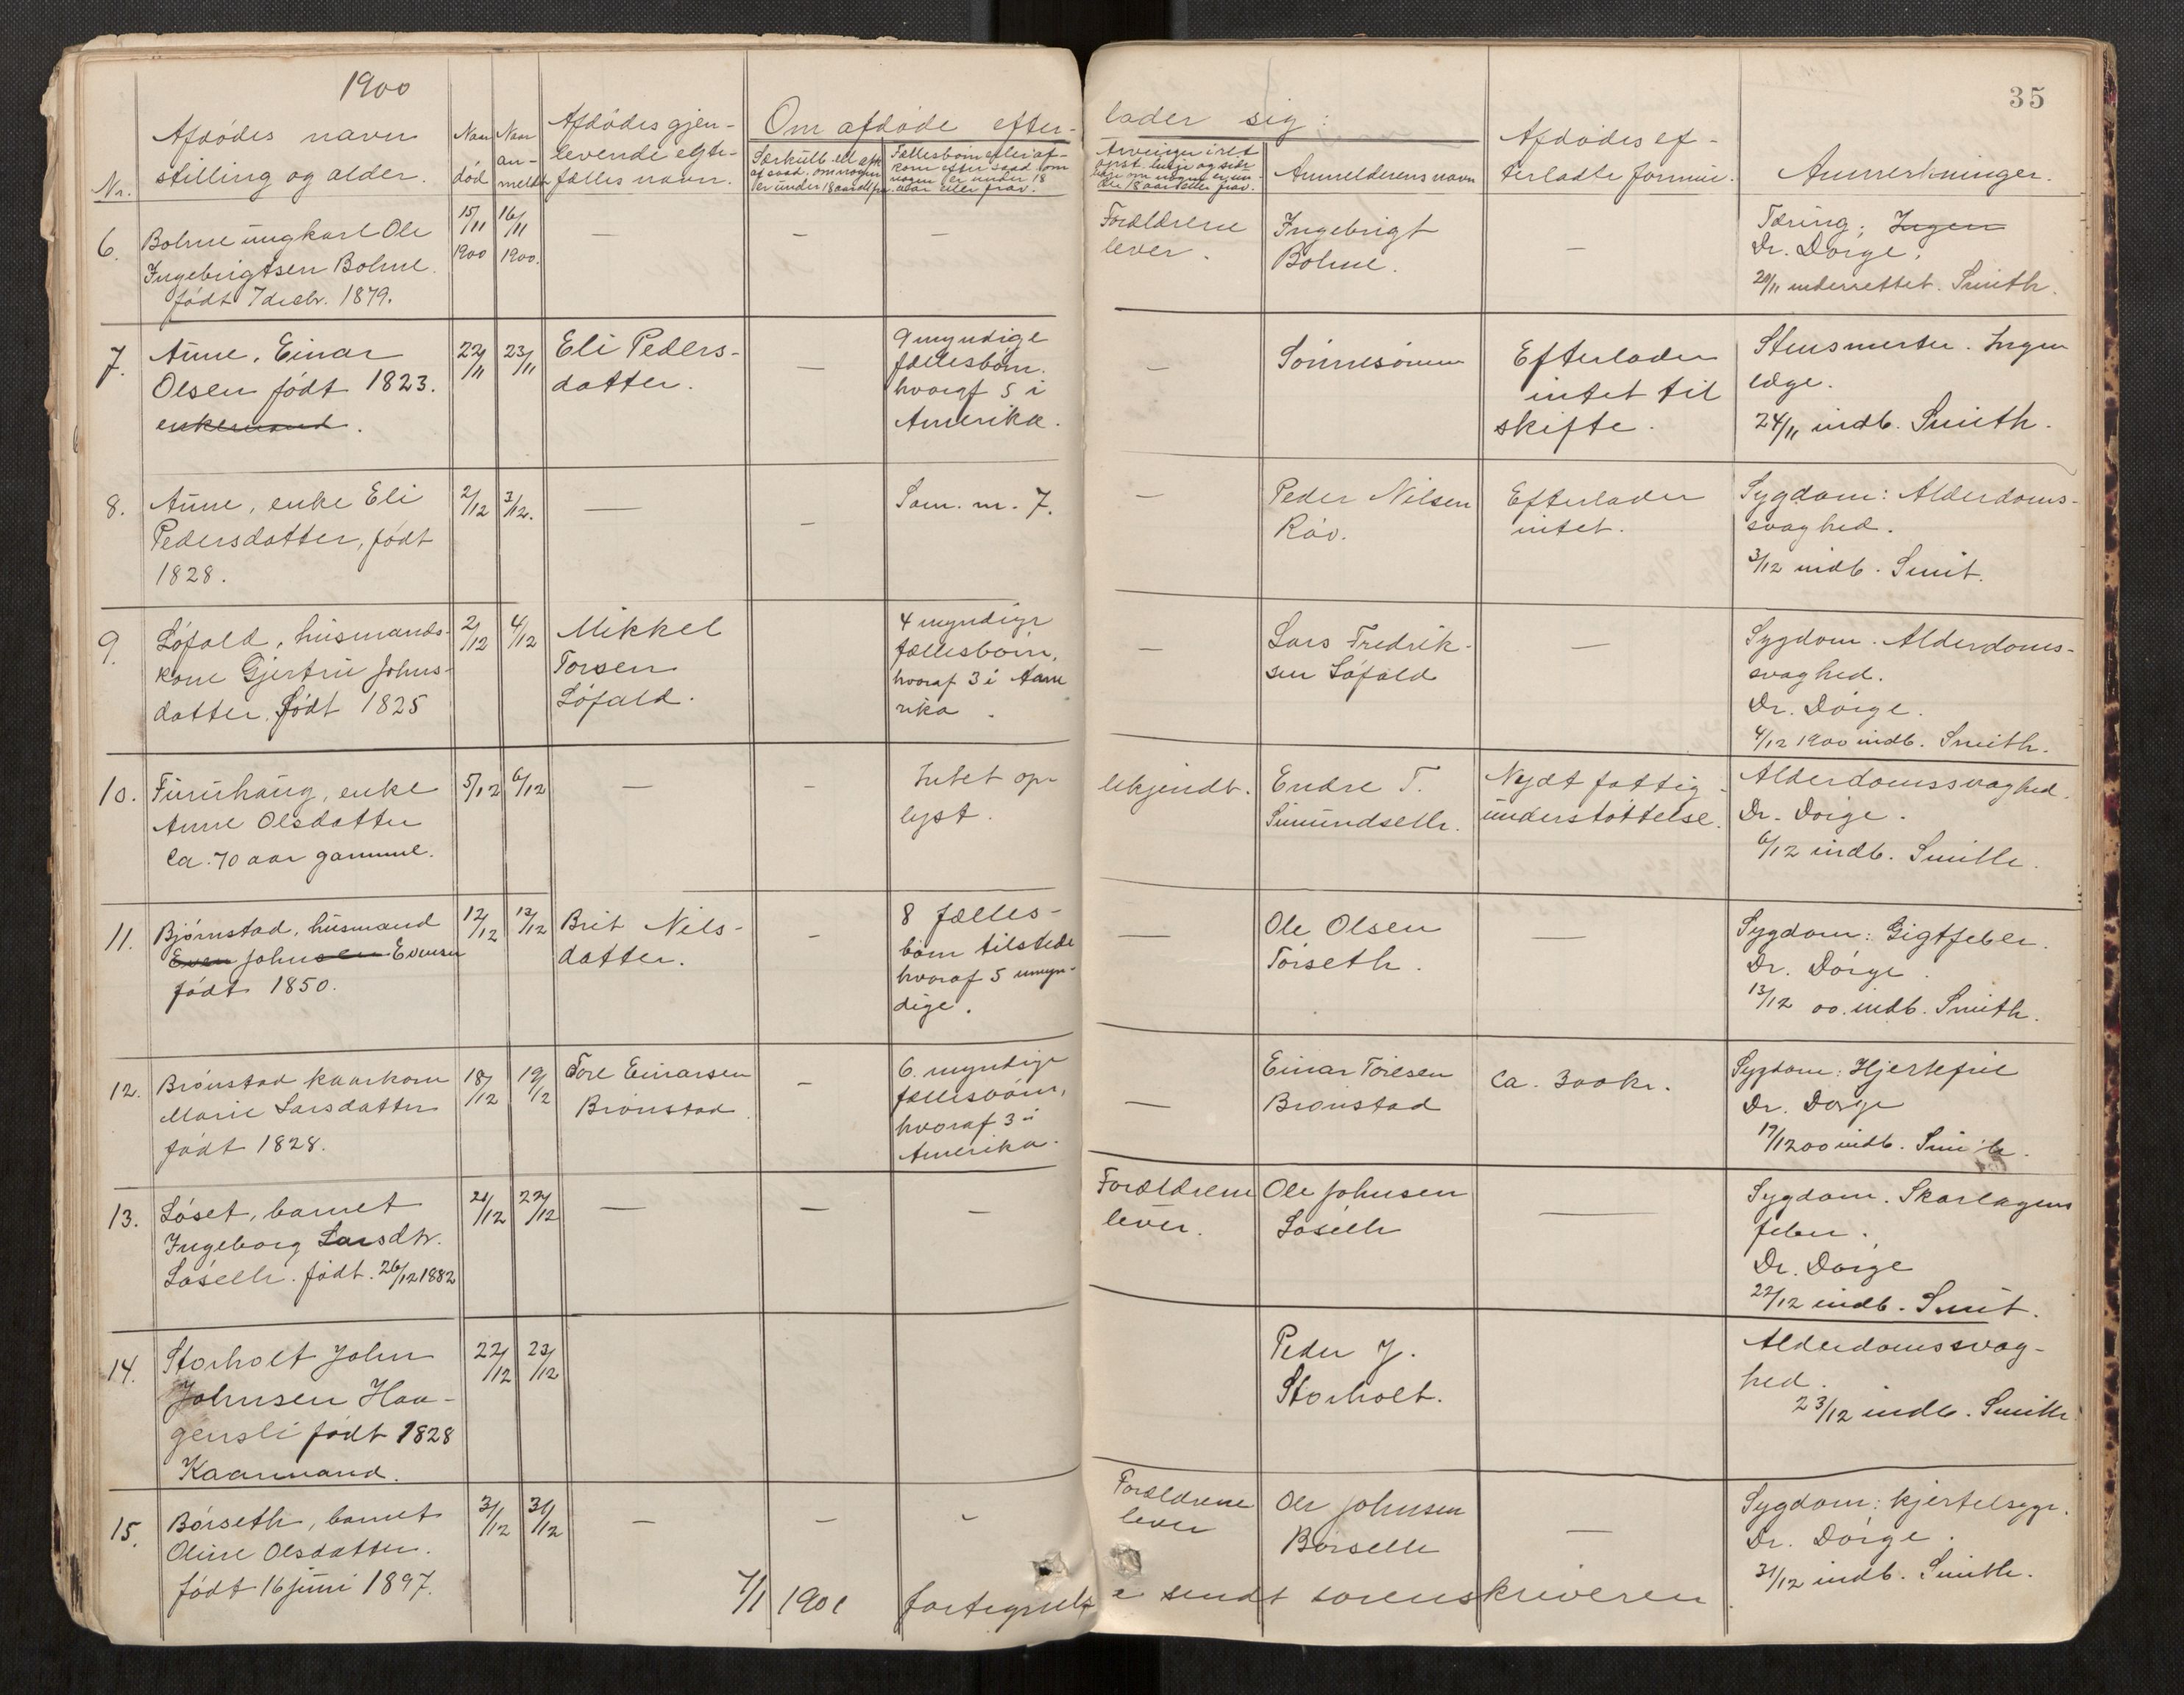 1900
35
Nr.
Afdødes navn
stilling og alder.
Naar
død
Naar
an-
meldt
Afdødes gjen-
levende ægte-
fælles navn.
Om afdøde efter-
lader sig:
Særkuld ell. afk.
af saad, om nogen
er under 18 aar ell. fra.
Fællesbørn eller af-
kom efter saad, om
nogen er under 18
aar eller frav.
Arvinger i ret
opst. linje og side
om nogen er un-
der 18 aar eller frav.
Anmelderens navn
Afdødes ef-
terladte formue.
Anmerkninger.
6.
Bolme ungkarl Ole
Ingebrigtsen Bolme.
født 7 decbr. 1879.
15/11
1900
16/11
1900.
—
—
—
Forældrene
lever.
Ingebrigt
Bolme.
—
Tæring; Ingen
Dr. Dørge.
20/11 underrettet. Smith.
7.
Aune, Einar
Olsen født 1823.
enkemand.
22/11
23/11
Eli Peders-
datter.
—
9 myndige
fællesbørn.
hvoraf 5 i
Amerika.
—
Sønnesønnen
Efterlader
intet til
skifte.
Stensmerter. Ingen
læge.
24/11 indb. Smith.
8.
Aune, enke Eli
Pedersdatter, født
1828.
2/12
3/12.
—
—
Som. nr. 7.
—
Peder Nilsen
Røv.
Efterlader
intet.
Sygdom: Alderdoms-
svaghed.
3/12 indb. Smit.
9.
Løfald, husmands-
kone Gjertru Johns-
datter, født 1825
2/12
4/12
Mikkel
Torsen
Løfald.
4 myndige
fællesbørn,
hvoraf 3 i Ame
rika.
—
Lars Fredrik-
sen Løfald
—
Sygdom. Alderdoms-
svaghed.
Dr. Dørge.
4/12 1900 indb. Smith.
10.
Furuhaug, enke
Anne Olsdatter
Ca. 70 aar gammel.
5/12
6/12
—
—
Intet op-
lyst.
Ubkjendt.
Endre T.
Simundseth.
Nydt fattig-
understøttelse.
Alderdomssvaghed.
Dr. Dørge.
6/12 indb. Smith.
11.
Bjørnstad, husmand
Even Johnsen Evensen
født 1850.
12/12
13/12
Brit Nils-
datter.
—
8 fælles-
børn tilstede
hvoraf 5 umyn-
dige.
—
Ole Olsen
Torseth.
—
Sygdom: Gigtfeber.
Dr. Dørge.
13/12 00. indb. Smith.
12.
Brønstad kaarkone
Marie Larsdatter
født 1828.
18/12
19/12
Tore Einarsen
Brønstad
—
6. myndige
fællesbørn,
hvoraf 3 i
Amerika.
—
Einar Toresen
Brønstad
Ca. 300 kr.
Sygdom: Hjertefeil
Dr. Dørge
19/12 00 indb. Smith.
13.
Løset, barnet
Ingeborg Larsdtr.
Løseth. født. 26/12 1882
21/12
22/12
—
—
—
Forældrene
lever.
Ole Johnsen
Løseth
—
Sygdom. Skarlagens
feber.
Dr. Dørge
22/12 indb. Smit.
14.
Storholt John
Johnsen Haa-
gensli født 1828
Kaarmand.
22/12
23/12
Peder J.
Storholt.
Alderdomssvag-
hed.
23/12 indb. Smith
15.
Børseth, barnet
Oline Olsdatter.
født 16 juni 1897.
31/12
31/12
—
—
—
Forældrene
lever
Ole Johnsen
Børseth
—
Sygdom: kjertelsyge.
Dr. Dørge.
31/12 indb. Smith.
7/1 1901 fortegnelse sendt sorenskriveren.